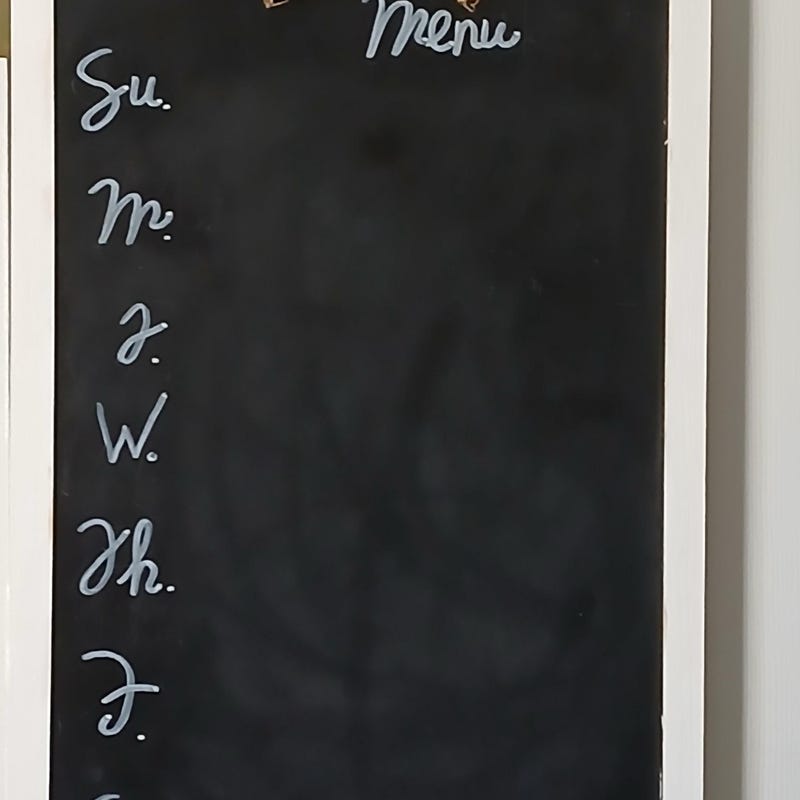 Menu
Su.
M.
T.
W.
Th.
F.